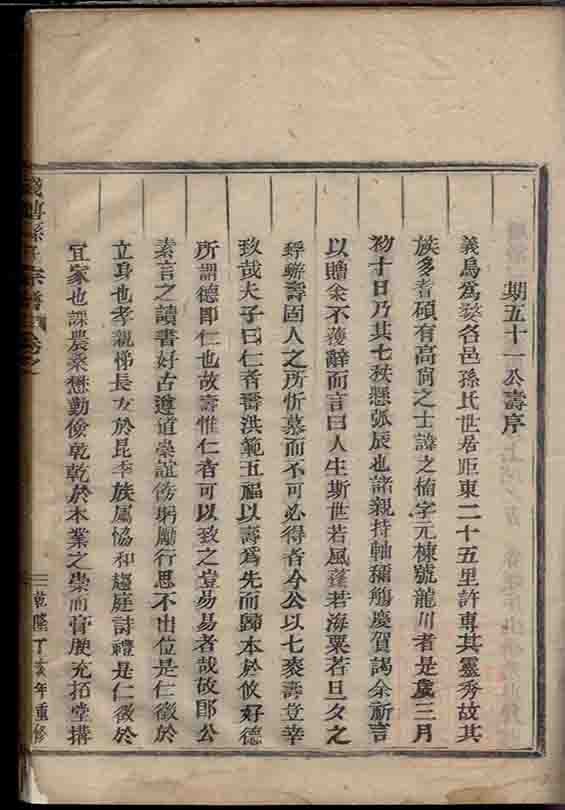 期五十一公壽序
義烏為婺名邑孫氏世居距東二十五里許專其靈秀故其
族多耆碩有高尚之士諱之楠字元棟號龍川者是歲三月
初十日乃其七秩懸弧辰也諸親持軸稱觴慶賀謁余祈言
以贈余不獲辭而言曰人生斯世若風蓬若海粟若旦夕之
蜉蝣壽固人之所忻慕而不可必得者今公以七袠壽豈幸
致哉夫子曰仁者壽洪範五福以壽為先而歸本於攸好德
所謂德即仁也故壽惟仁者可以致之豈易易者哉故即公
素言之讀書好古遵道崇誼飭躬勵行思不出位是仁徵於
立身也孝親悌長友於昆季族屬協和趨庭詩禮是仁徵於
宜家也課農桑懋勤儉乾乾於本業之崇而膏腴充拓堂搆
孫氏宗譜 卷之
乾隆丁亥年重修